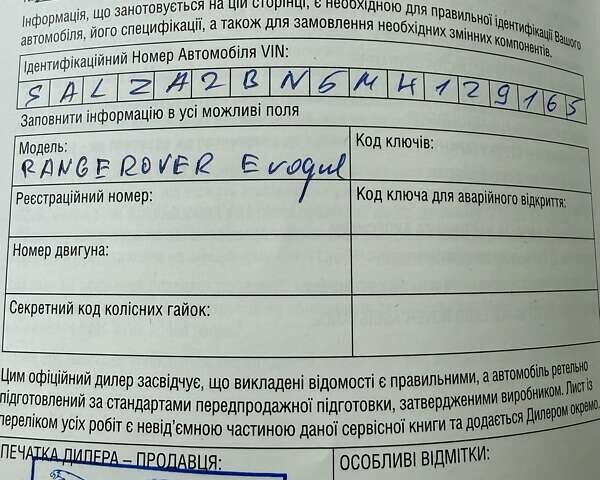 Інформація, що занотовується на цій сторінці, є необхідною для правильної ідентифікації Вашого
автомобіля, його специфікації, а також для замовлення необхідних змінних компонентів.
Ідентифікаційний Номер Автомобіля VIN:
SALZA2BN6MH129165
Заповнити інформацію в усі можливі поля
Модель:
RANGEROVER Evoque
Код ключів:
Реєстраційний номер:
Код ключа для аварійного відкриття:
Номер двигуна:
Секретний код колісних гайок:
Цим офіційний дилер засвідчує, що викладені відомості є правильними, а автомобіль ретельно
підготовлений за стандартами передпродажної підготовки, затвердженими виробником. Лист із
переліком усіх робіт є невід'ємною частиною даної сервісної книги та додається Дилером окремо.
ПЕЧАТКА ДИЛЕРА – ПРОДАВЦЯ:
ОСОБЛИВІ ВІДМІТКИ: